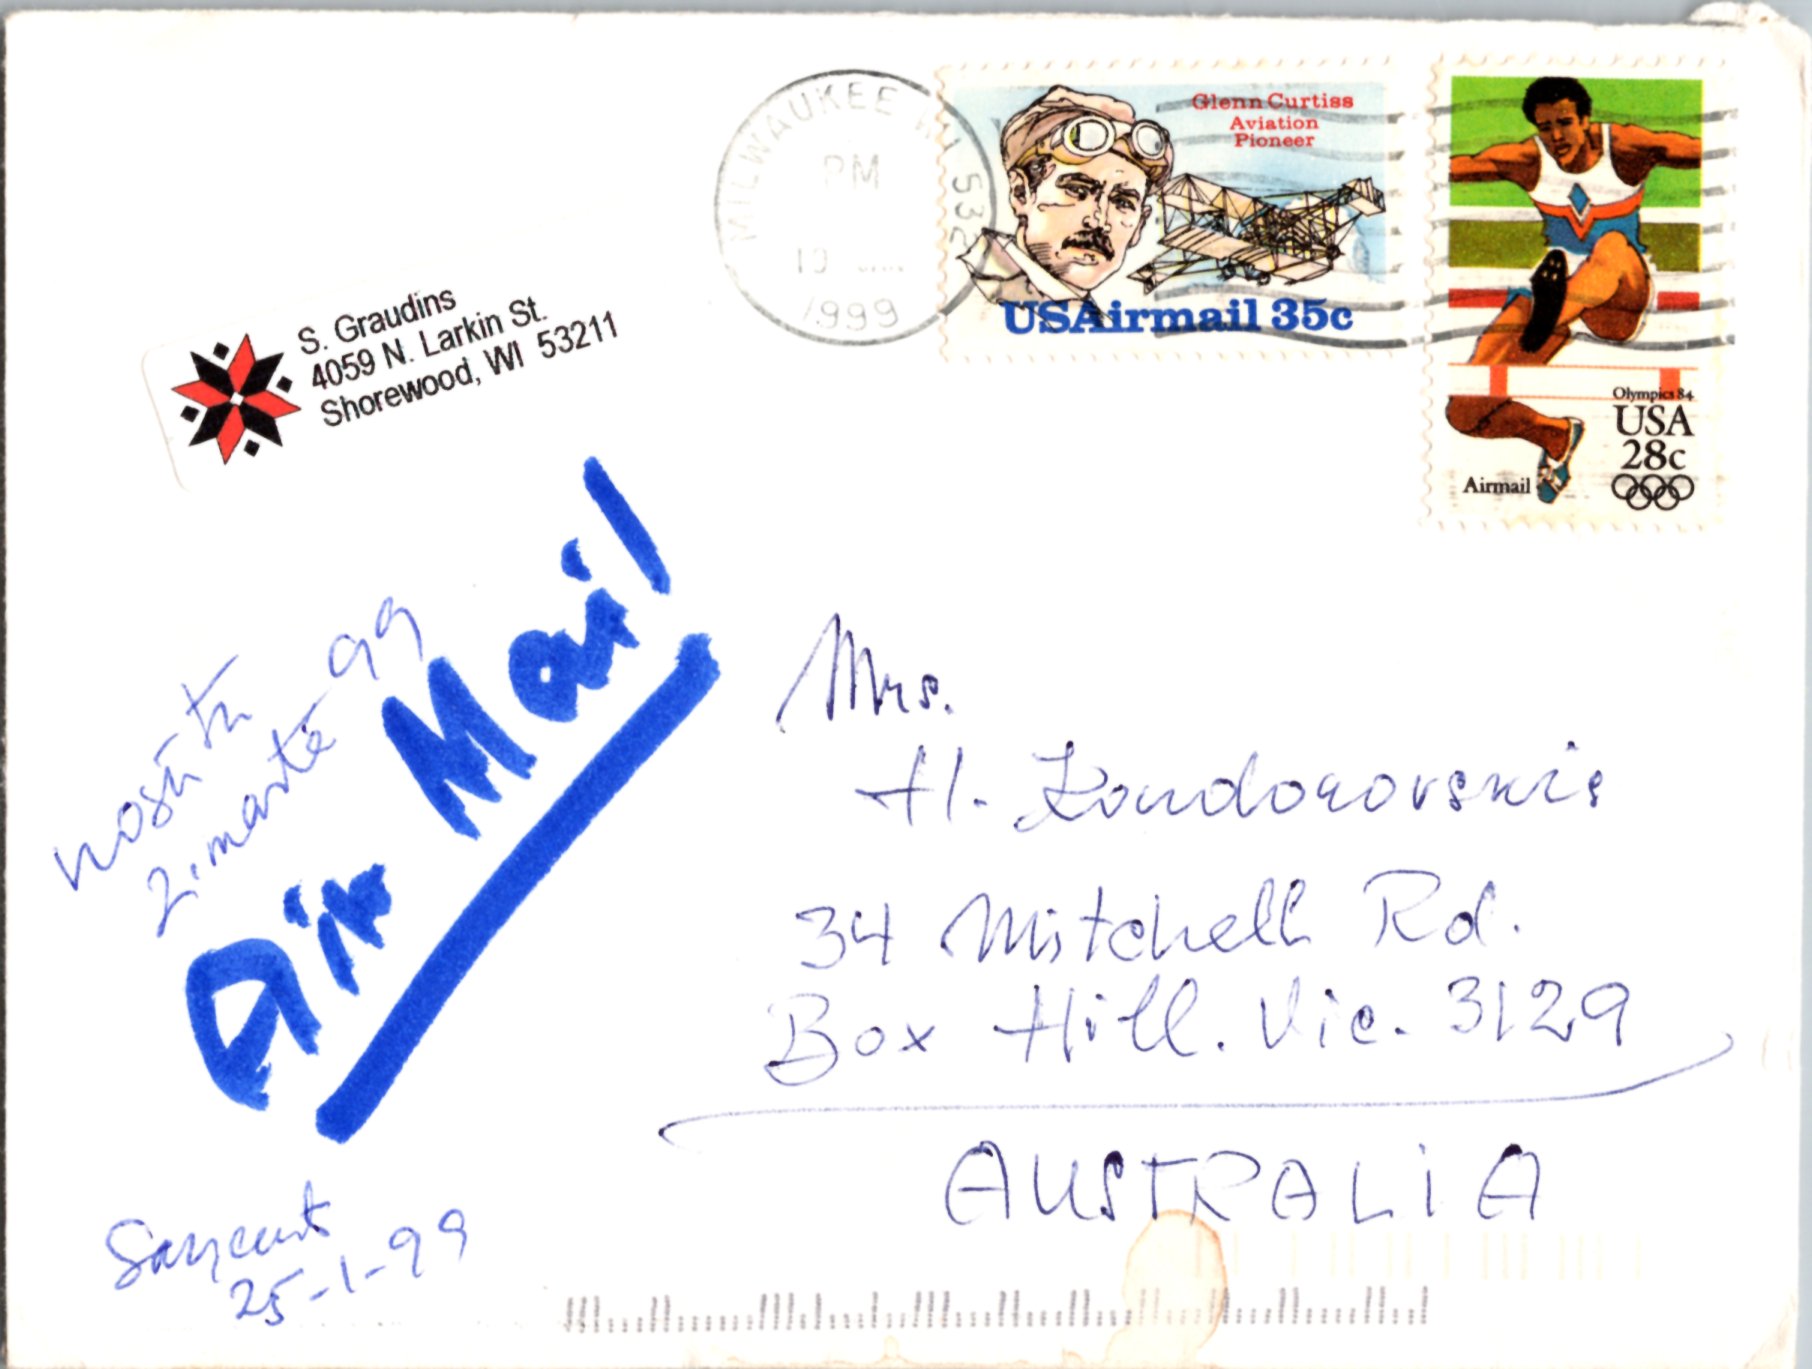 MILWAUKEE WI 532
PM
19
1999
Glenn Curtiss
Aviation
Pioneer
USAirmail 35c
Olympics 84
USA
28c
Airmail
S. Graudins
4059 N. Larkin St.
Shorewood, WI 53211
Air Mail
nosūtu
2. martē 99
Mrs.
H.
34 Mitchell Rd.
Box Hill. Vic. 3129
AUSTRALIA
Saņemts
25-1-99